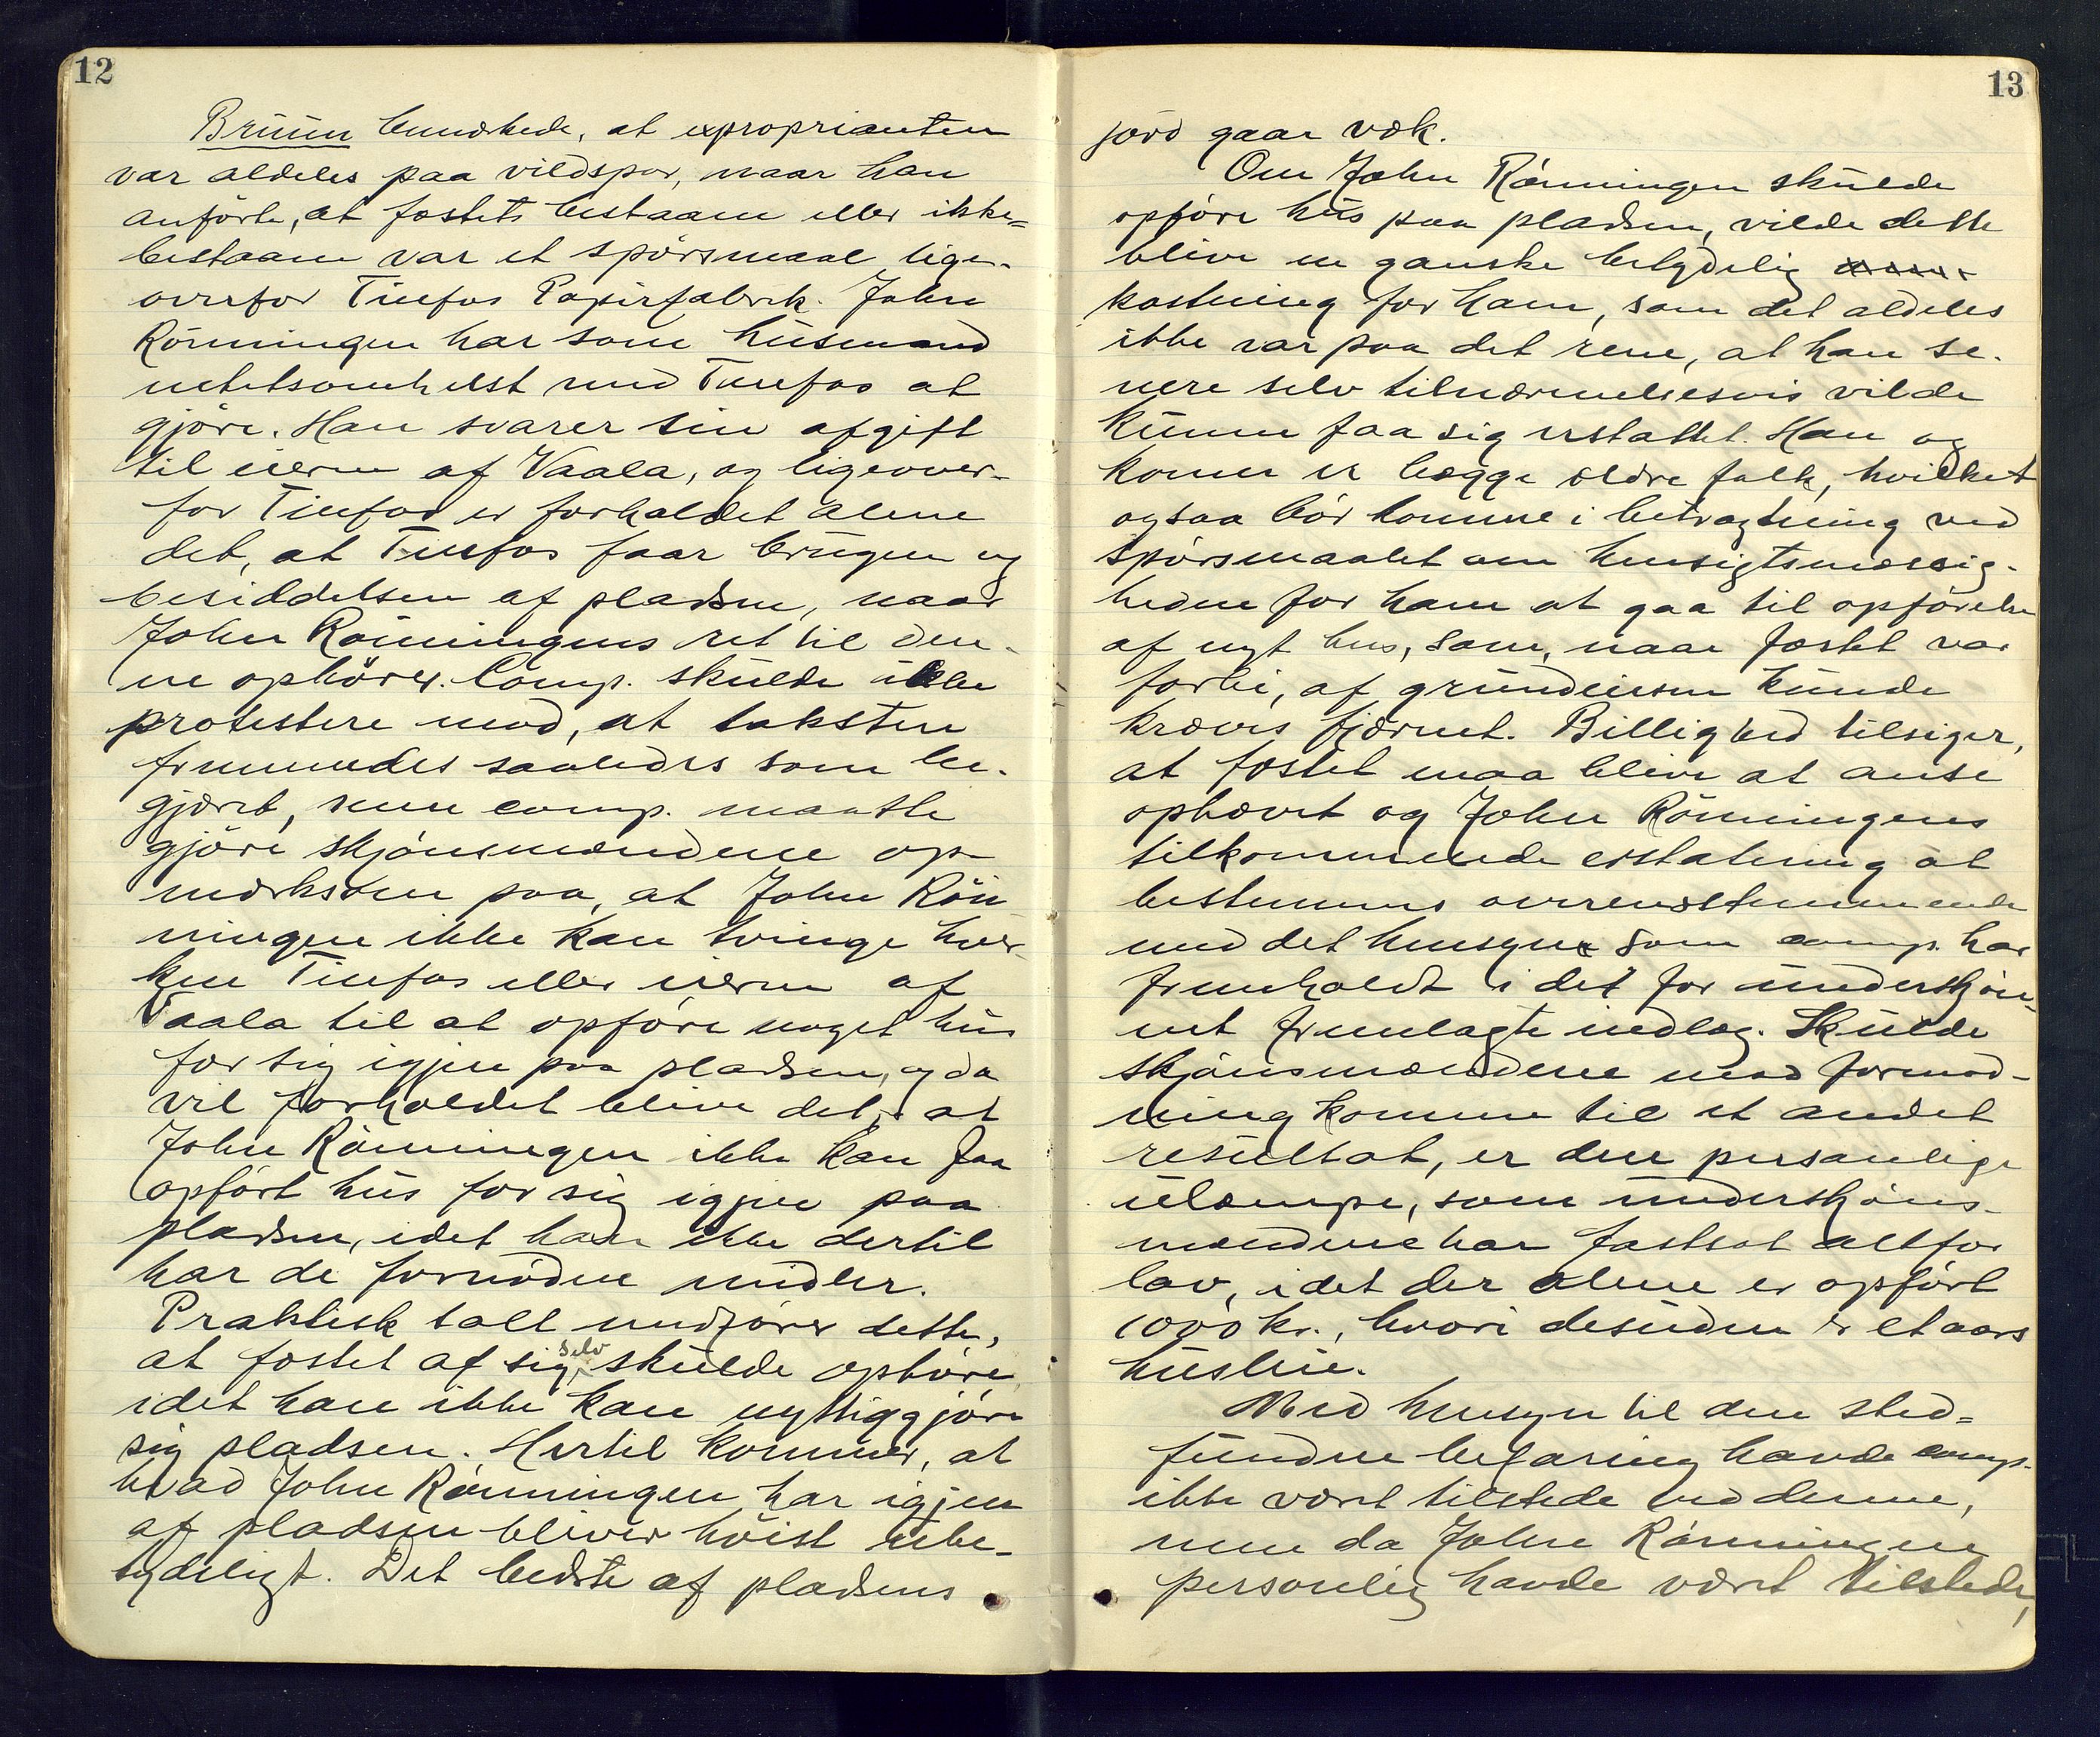 12
Bruun bemærkede, at exproprianten
var aldeles paa vildspor, naar han
anförte, at fæstets bestaaen eller ikke=
bestaaen var et spörsmaal lige-
overfor Tinfos Papirfabrik. John
Rönningen har som husmand
intetsomhelst med Tinfos at
gjöre. Han svarer sin afgift
til eieren af Vaala, og ligeover-
for Tinfos er forholdet alene
det, at Tinfos faar brugen og
besiddelsen af pladsen, naar
John Rönningens ret til den-
ne ophörer. Comp. skulde ikke
protestere mod, at taksten
fremmedes saaledes som be-
gjæret, men comp. maatte
gjöre skjönsmændene op-
mærksom paa, at John Rön
ningen ikke kan tvinge hver-
ken Tinfos eller eieren af
Vaala til at opföre noget hus
for sig igjen paa pladsen, og da
vil forholdet blive det, at
John Rönningen ikke kan faa
opfört hus for sig igjen paa
pladsen, idet han ikke dertil
har de fornödne midler.
Praktisk talt medförer dette,
at fæstet af sig selv skulde ophöre,
idet han ikke kan nyttiggjöre
sig pladsen. Hertil kommer, at
hvad John Rönningen har igjen
af pladsen bliver höist ube-
tydeligt. Det bedste af pladsens
13
jord gaar væk.
Om John Rönningen skulde
opföre hus paa pladsen, vilde dette
blive en ganske betydelig
kostning for ham, som det aldeles
ikke var paa det rene, at han se-
nere selv tilnærmelsesvis vilde
kunne faa sig erstattet. Han og
konen er begge ældre folk, hvilket
ogsaa bör komme i betragtning ved
spörsmaalet om hensigtsmæssig-
heden for ham at gaa til opförelse
af nyt hus, som, naar fæstet var
forbi, af grundeieren kunde
kræves fjærnet. Billighed tilsiger,
at fæstet maa blive at anse
ophævet og John Rönningens
tilkommende erstatning at
bestemmes overensstemmende
med det hensyn som comp. har
fremholdt i det for underskjön-
net fremlagte indlæg. Skulde
skjönsmændene mod formod-
ning komme til et andet
resultat, er den personlige
ulæmpe, som underskjöns-
mændene har fastsat altfor
lav, idet der alene er opfört
1000 kr., hvori desuden er et aars
husleie.
Med hensyn til den sted=
fundne befaring havde comp.
ikke været tilstede ved denne,
men da John Rönningen
personlig havde været tilstede,